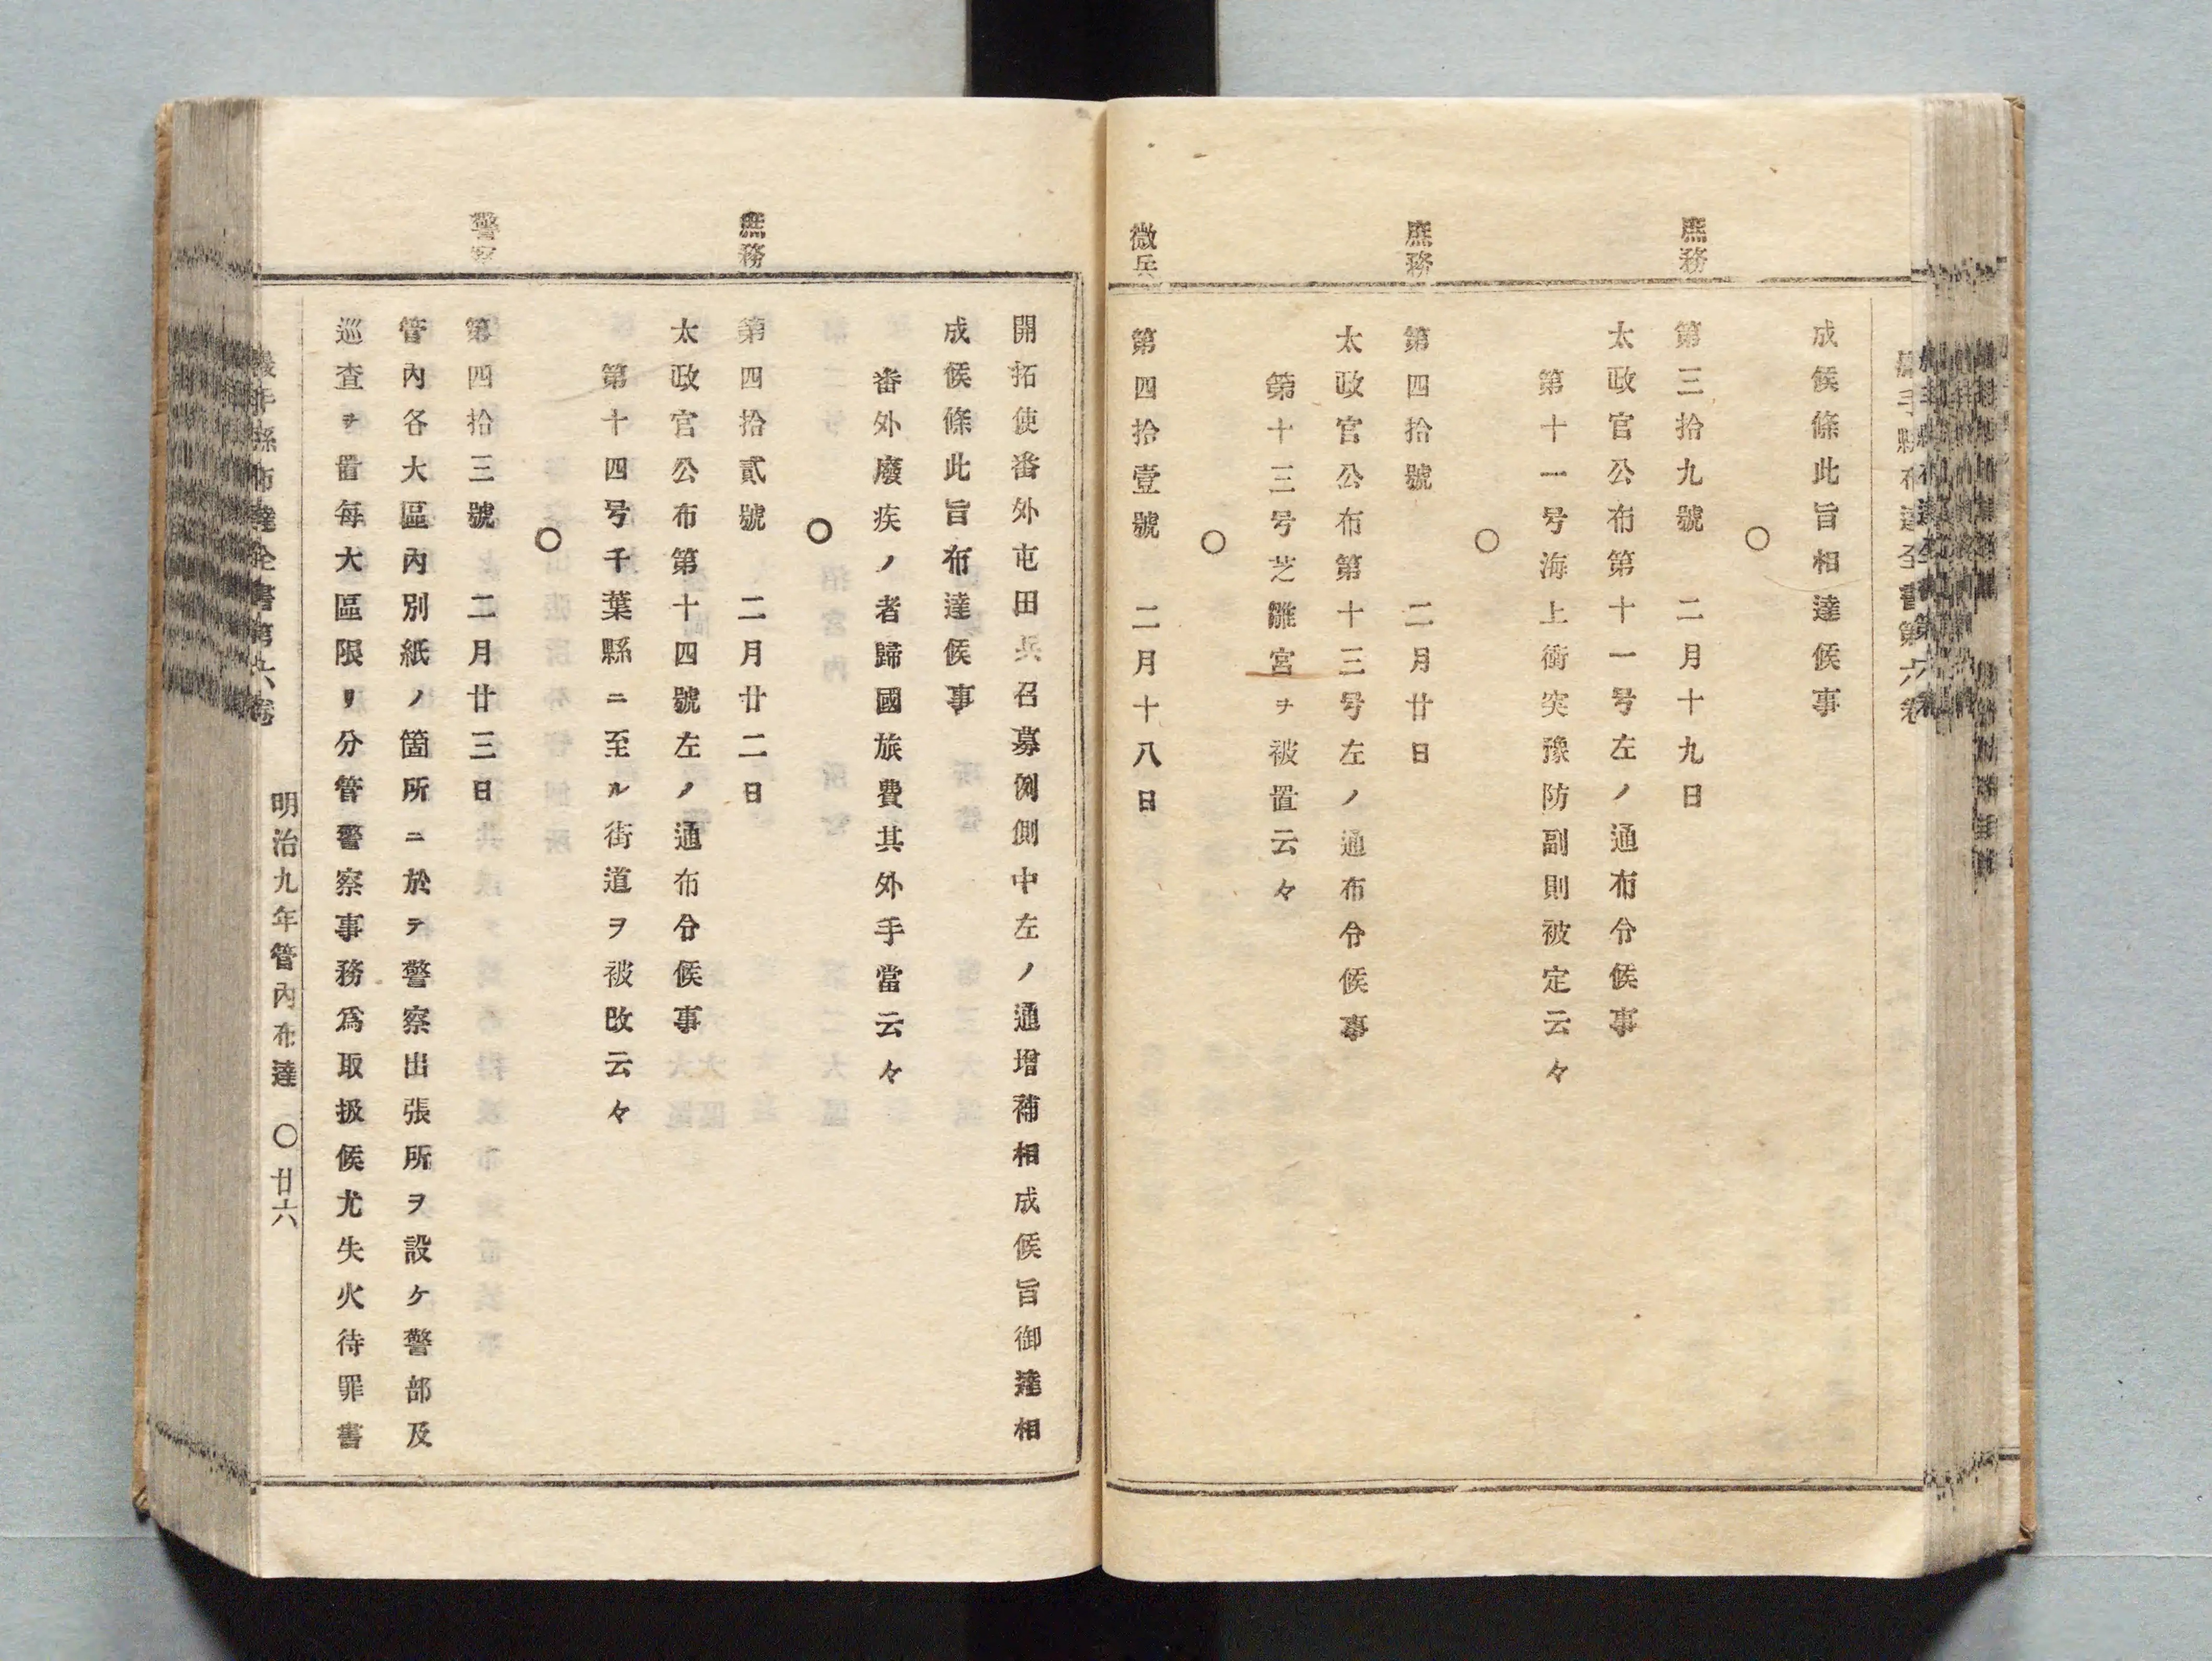 成候條此旨相達候事
○
庶務
第三拾九號 二月十九日
太政官公布第十一号左ノ通布令候事
第十一号海上衝突豫防副則被定云々
○
庶務
第四拾號 二月廿日
太政官公布第十三号左ノ通布令候事
第十三号芝離宮ヲ被置云々
○
徴兵
第四拾壹號 二月十八日
開拓使番外屯田兵召募例側中左ノ通増補相成候旨御達相
成候條此旨布達候事
番外廢疾ノ者歸國旅費其外手當云々
○
庶務
第四拾貳號 二月廿二日
太政官公布第十四號左ノ通布令候事
第十四号千葉縣ニ至ル街道ヲ被改云々
○
警察
第四拾三號 二月廿三日
管內各大區內別紙ノ箇所ニ於テ警察出張所ヲ設ケ警部及
巡査ヲ置每大區限リ分管警察事務爲取扱候尤失火待罪書
縣布達全書第六卷
明治九年管內布達 ○廿六